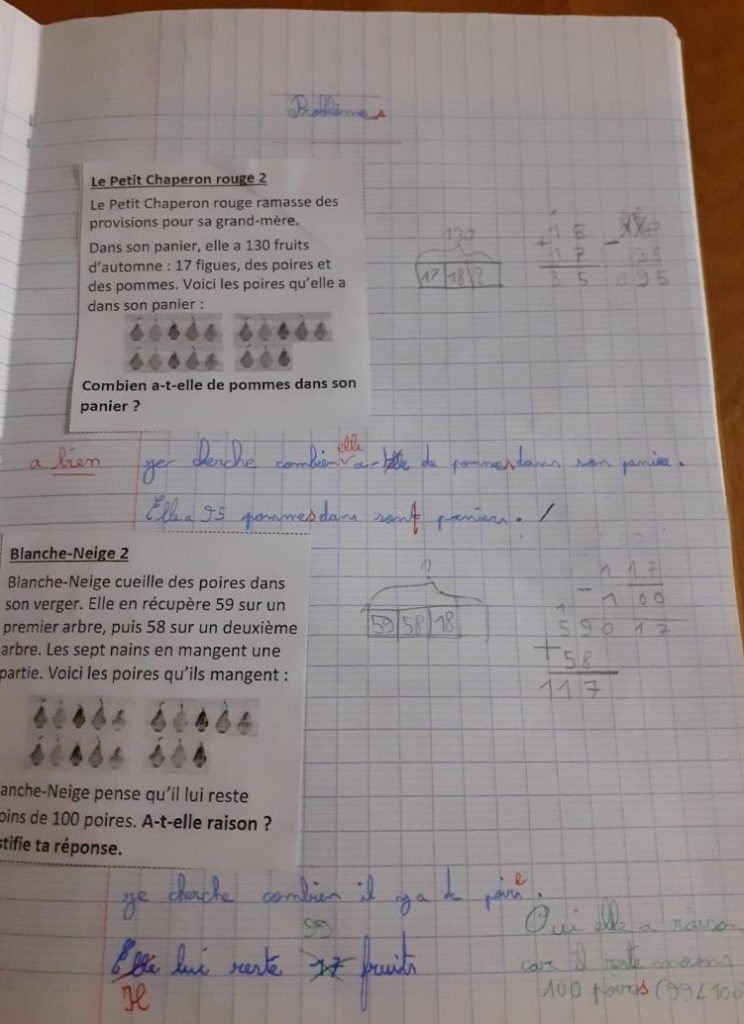 Problèmes
Le Petit Chaperon rouge 2
Le Petit Chaperon rouge ramasse des
provisions pour sa grand-mère.
Dans son panier, elle a 130 fruits
d'automne : 17 figues, des poires et
des pommes. Voici les poires qu'elle a
dans son panier :
Combien a-t-elle de pommes dans son
panier ?
130
17 18 ?
1
18
+ 17
35
- 35
095
a bien
je cherche combien elle a de pommes dans son panier.
Elle a 95 pommes dans sont paniers. /
Blanche-Neige 2
Blanche-Neige cueille des poires dans
son verger. Elle en récupère 59 sur un
premier arbre, puis 58 sur un deuxième
arbre. Les sept nains en mangent une
partie. Voici les poires qu'ils mangent :
anche-Neige pense qu'il lui reste
oins de 100 poires. A-t-elle raison ?
stifie ta réponse.
?
59 58 18
117
- 100
1
59 017
+ 58
117
je cherche combien il y a de poire.
99
Elle lui reste 17 fruits
Il
Oui elle a raison
car il reste moins
100 poires (99<100